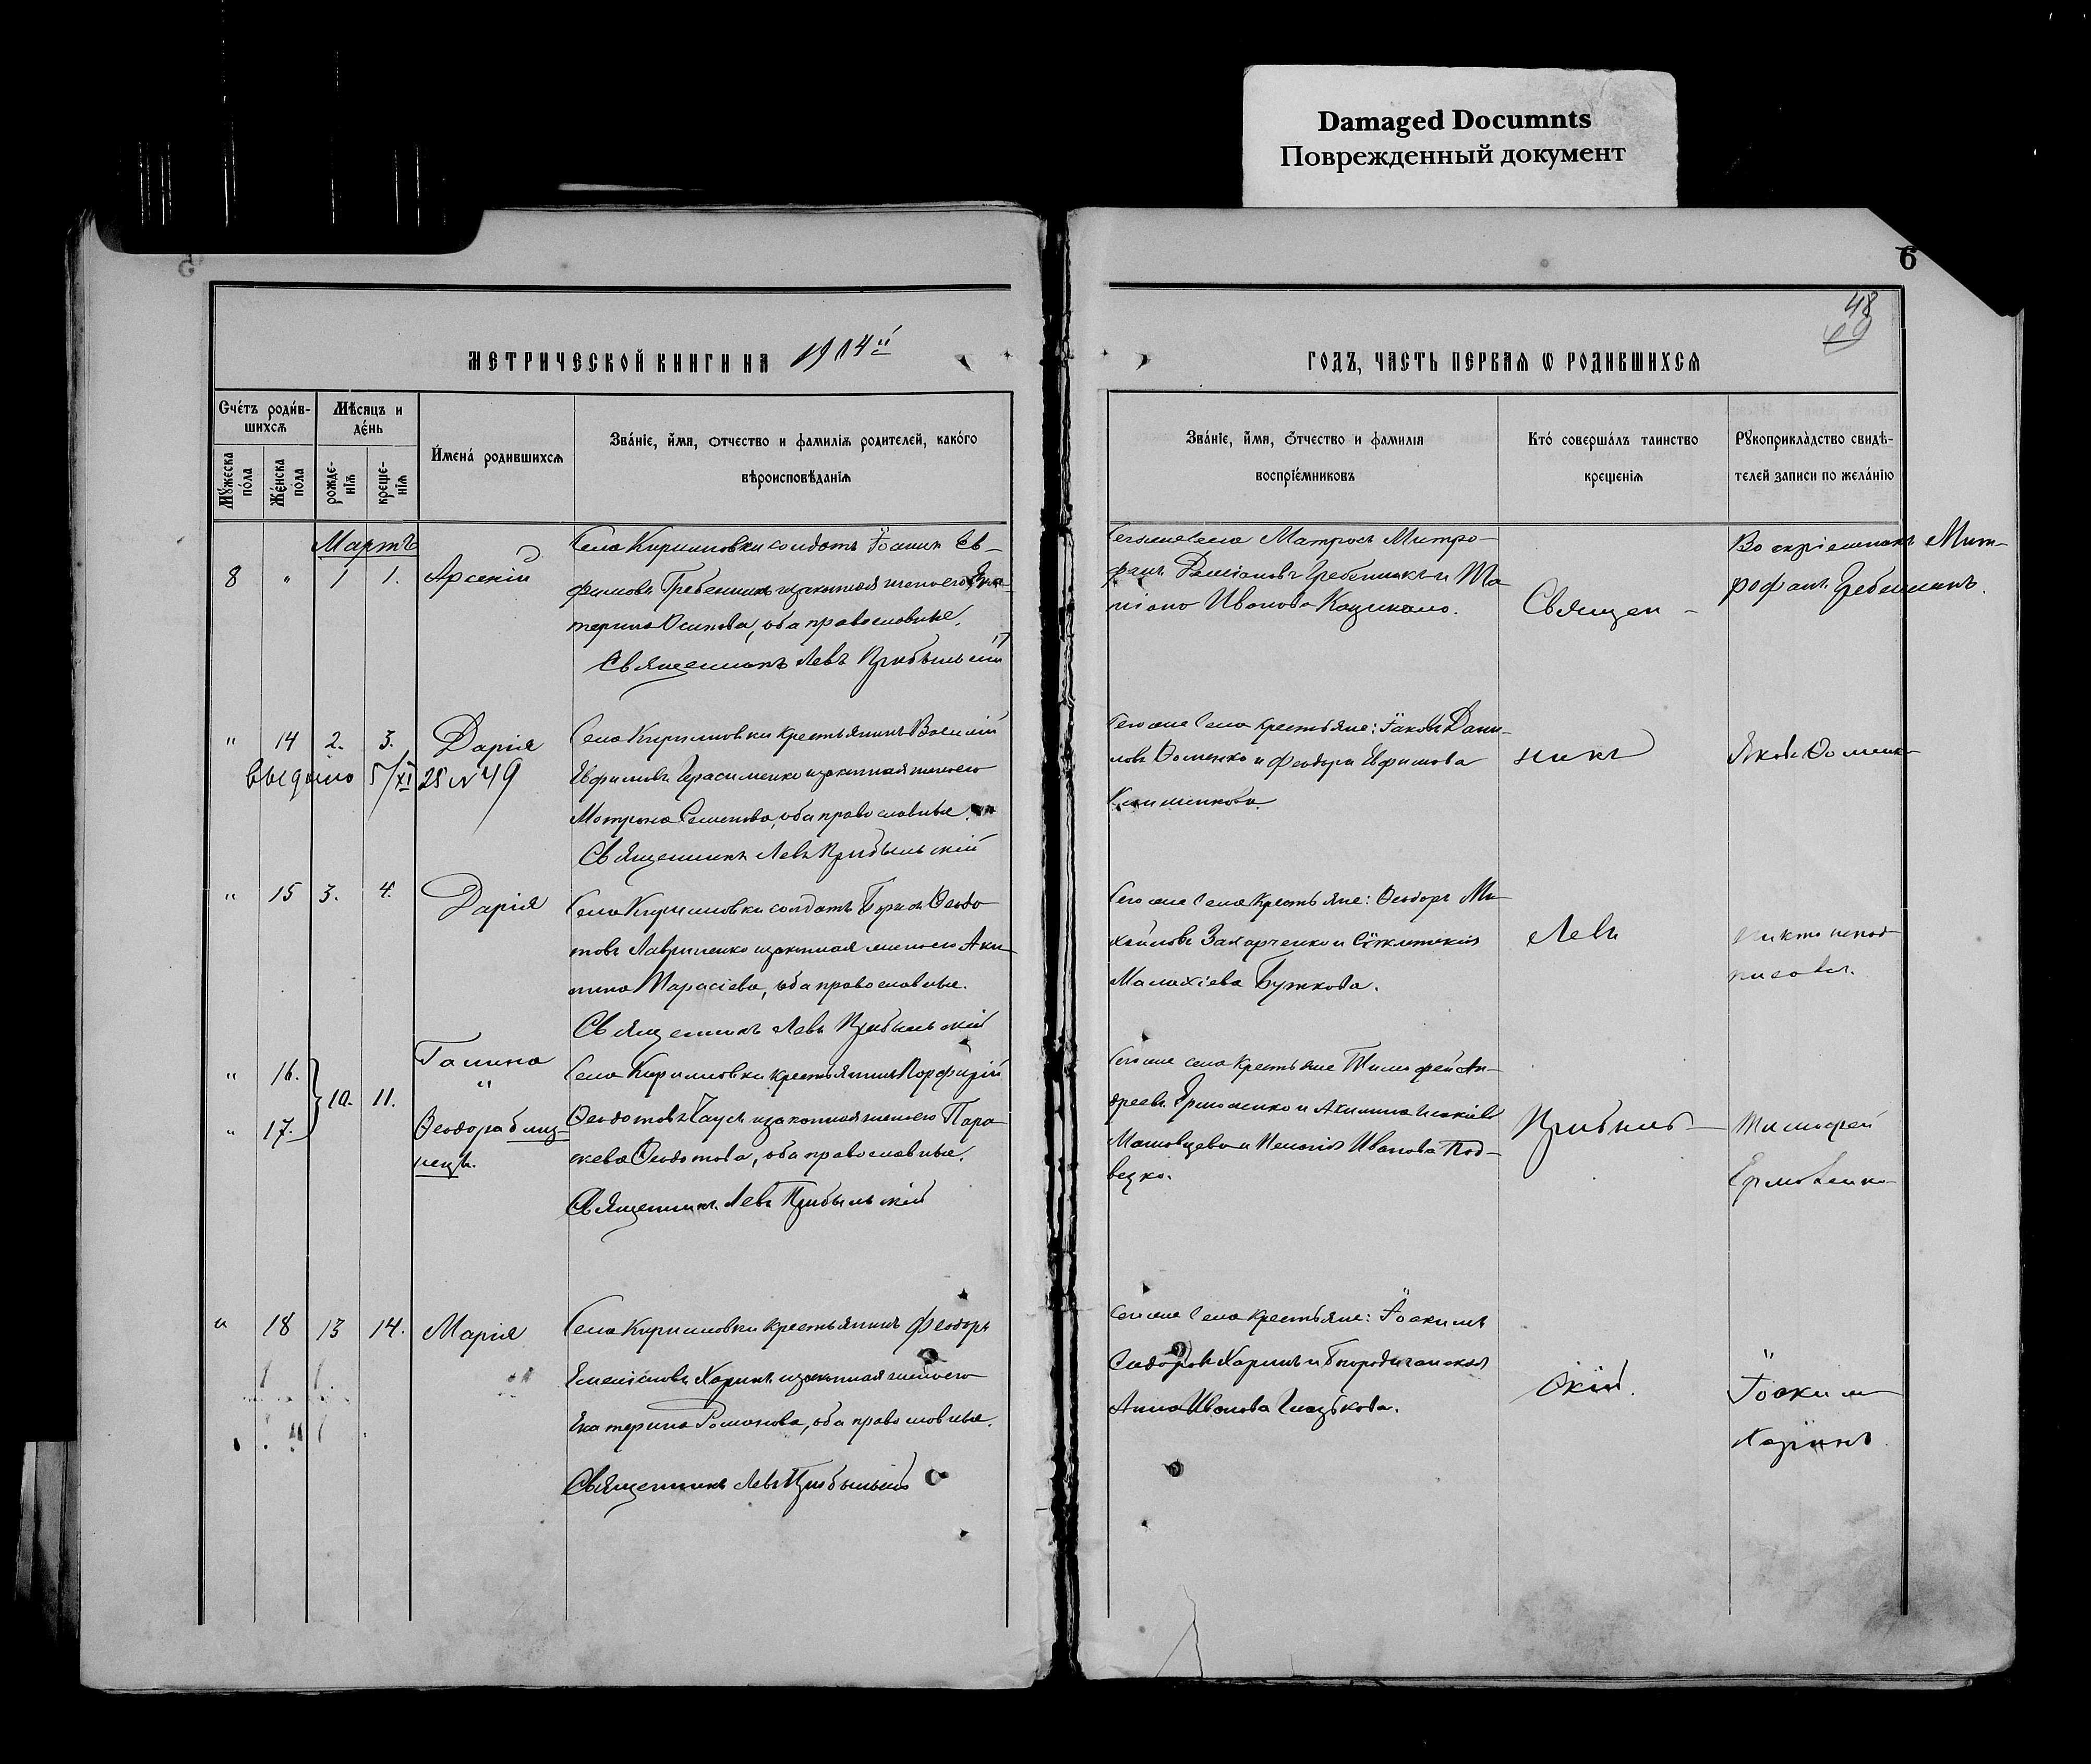 Damaged Documnts
Поврежденный документ
6
48
69
МЕТРИЧЕСКОЙ КНИГИ НА 1914й
ГОДЪ, ЧАСТЬ ПЕРВАѦ Ѡ РОДИВШИХСѦ
Счетъ родив-
шихсѧ
Мужеска
пола
Женска
пола
Мѣсяцъ и
день
рожде-
нїѧ
креще-
нїѧ
Имена родившихсѧ
Званїе, имя, отчество и фамилїѧ родителей, какого
вѣроисповѣданїѧ
Званїе, имя, отчество и фамилїя
воспрїемниковъ
Кто совершалъ таинство
крещенїѧ
Рукоприкладство свидѣ-
телей записи по желанїю
Мартъ
8 " 1 1. Арсеній
Села Кирилловки солдатъ Іоаннъ Ев-
фимовъ Гребенникъ и законная жена его Ека-
терина Осипова, оба православные.
Священникъ Левъ Прибыльскій
Того же села Матросъ Митро-
фанъ Даміановъ Гребенникъ и Та-
тіана Иванова
Священ-
Митрофанъ Гребенникъ.
" 14 2. 3. Дарія
Выдано 5/XI 25 № 49
Села Кирилловки крестьянинъ Василій
Евфимовъ Герасименко и законная жена его
Матрона Семенова, оба православные.
Священникъ Левъ Прибыльскій
Того же села крестьяне: Іаковъ Дани-
ловъ Фоменко и Феодора Евфимова
никъ
Яковъ Фоменко
" 15 3. 4. Дарія
Села Кирилловки солдатъ Борисъ Феодо-
товъ Лавриненко и законная жена его Аки-
лина Тарасіева, оба православные.
Священникъ Левъ Прибыльскій
Того же села крестьяне: Феодоръ Ми-
хайловъ Захарченко и
Малахіева Бужкова.
Левъ
Никто непод-
писался.
" 16. Галина
" 17. 10. 11. Феодора близ-
нецы.
Села Кирилловки крестьянинъ Порфирій
Феодотовъ Чаусъ и законная жена его Пара-
скева Феодотова, оба православные.
Священникъ Левъ Прибыльскій
Того же села крестьяне Тимофей Ан-
дреевъ Ермоленко и Акилина
и Иванова Под-
Прибыль-
Тимофей
Ермоленко
" 18 13 14. Марія
Села Кирилловки крестьянинъ Феодоръ
Емеліановъ Харинъ и законная жена его
Екатерина Романова, оба православные.
Священникъ Левъ Прибыльскій
Того же села крестьяне: Іоакимъ
Сидоровъ Харинъ и
Анна Иванова
скій.
Іоакимъ
Харинъ